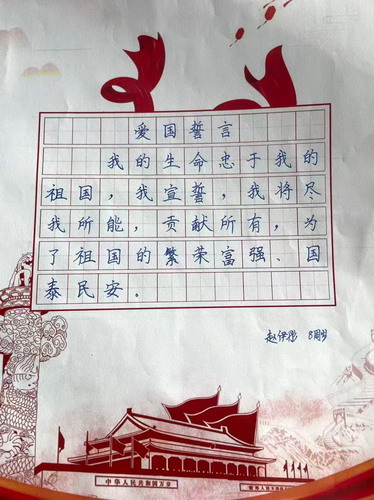 爱国誓言
我的生命忠于我的
祖国，我宣誓，我将尽
我所能，贡献所有，为
了祖国的繁荣富强、国
泰民安。
8周岁
中华人民共和国万岁